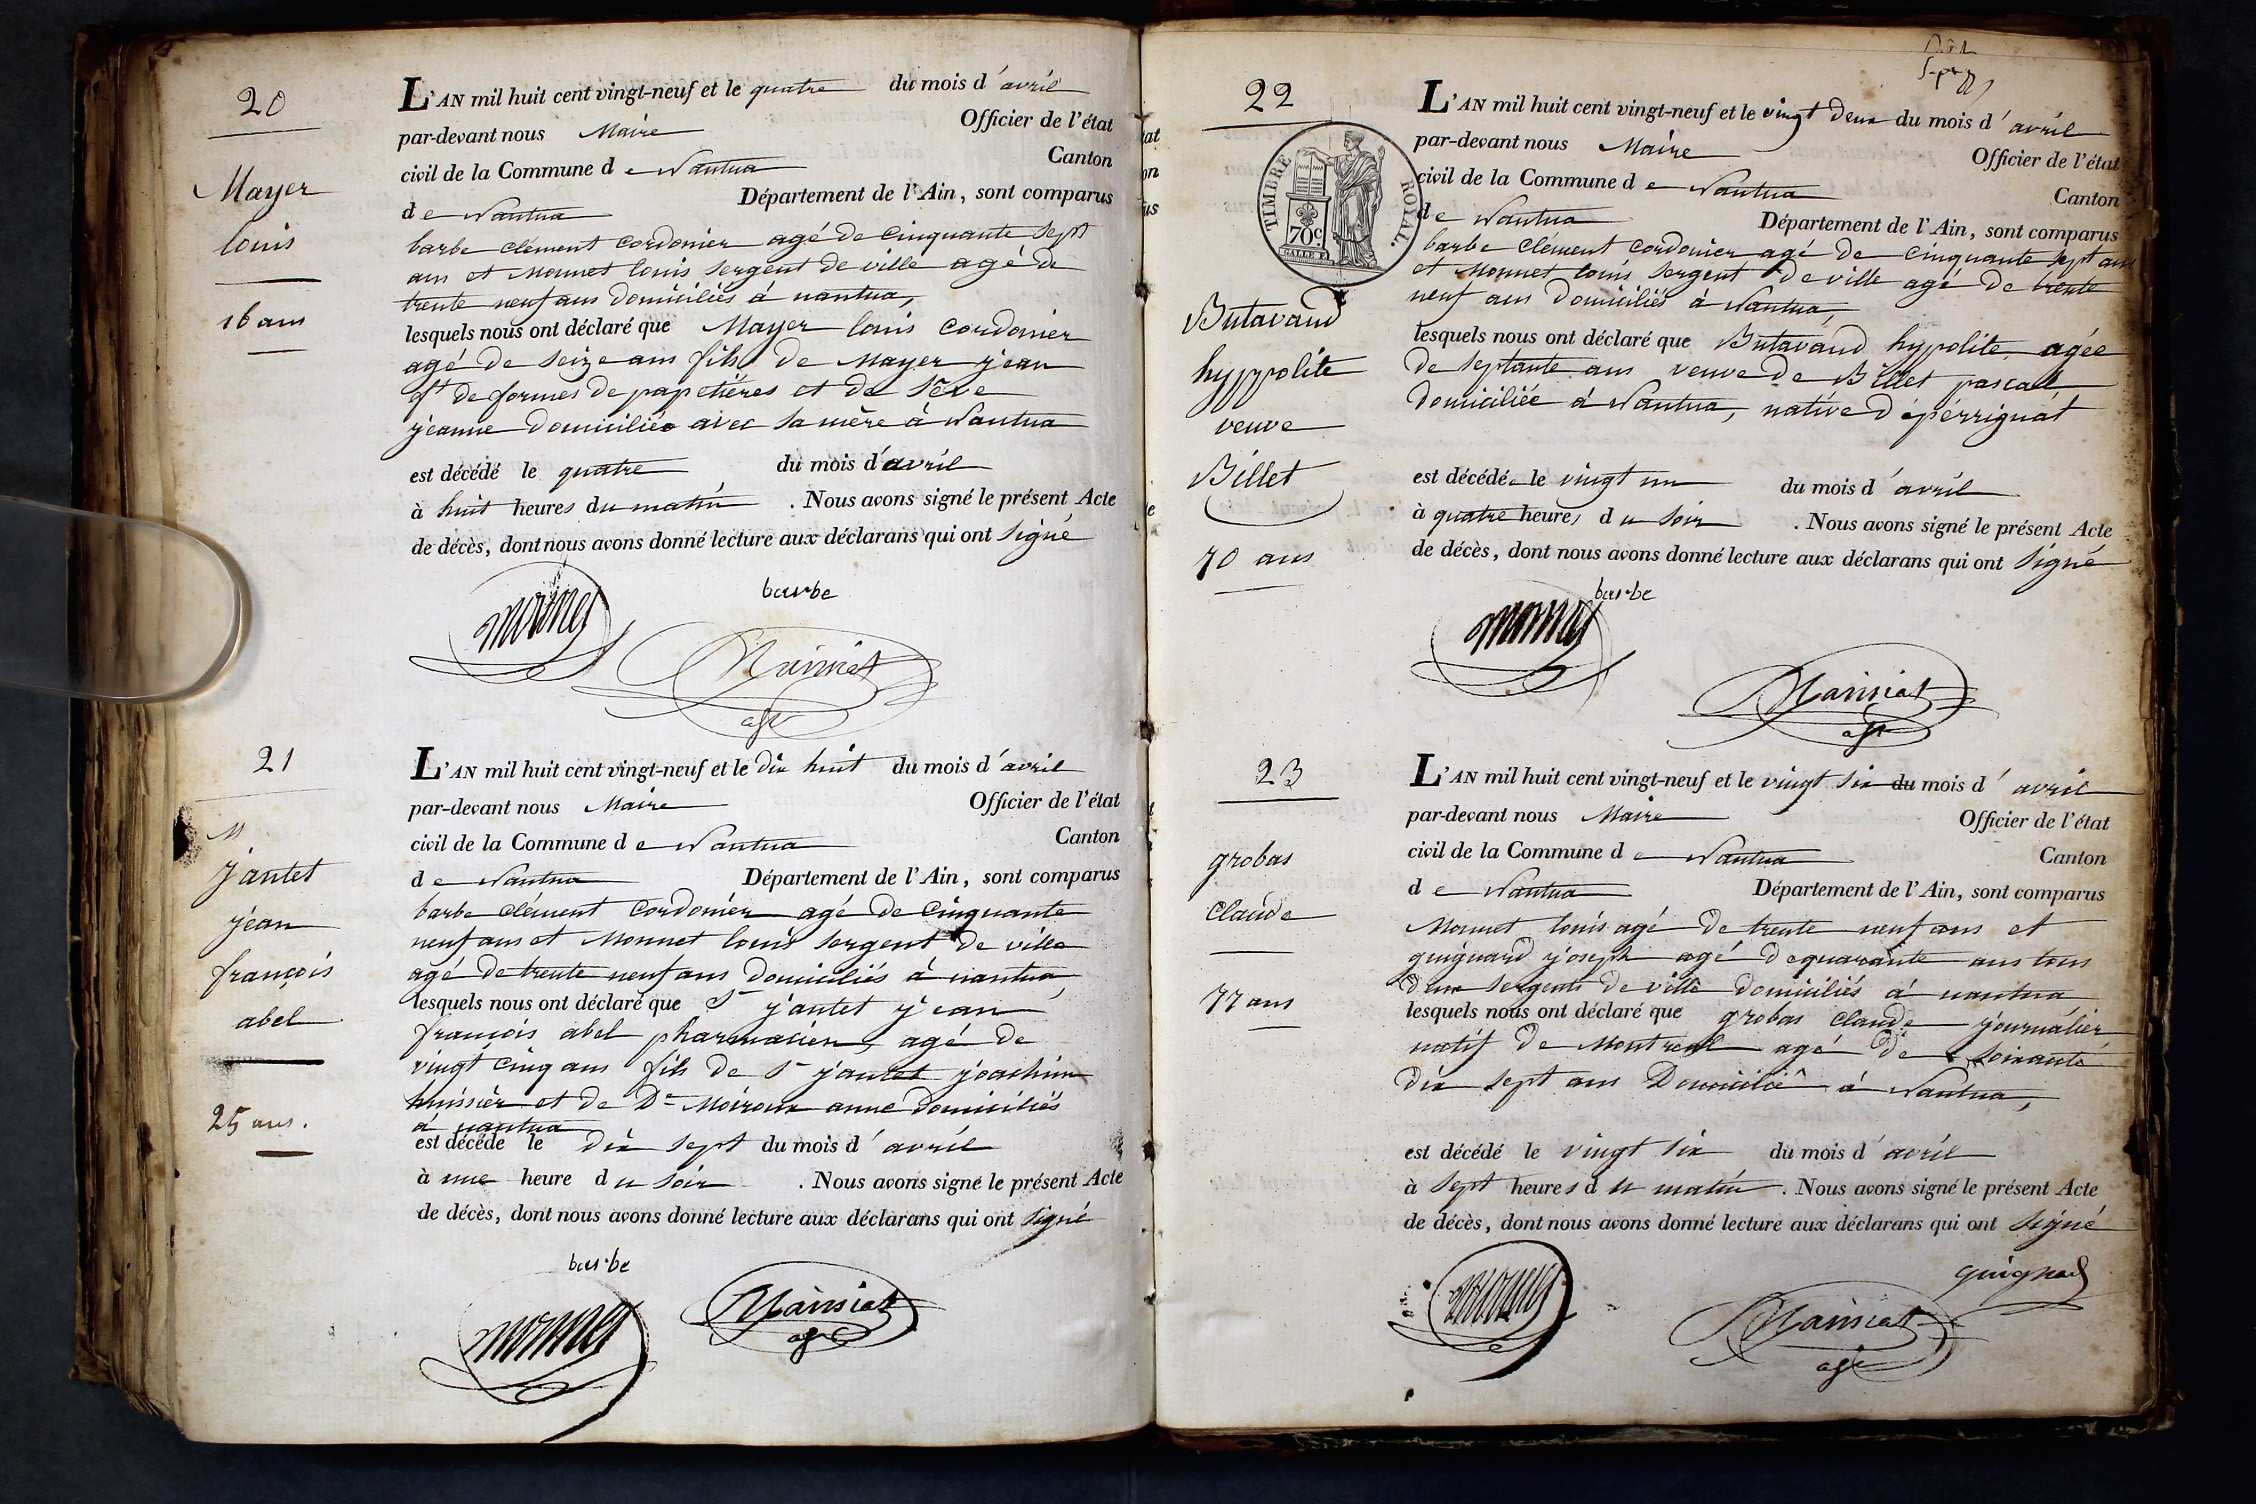 20
Mayer
louis
16 ans
L'AN mil huit cent vingt-neuf et le quatre du mois d'avril
par-devant nous Maire Officier de l'état
civil de la Commune de Nantua Canton
de Nantua Département de l'Ain, sont comparus
barbe clément cordonier agé de cinquante sept
ans et Monnet louis sergent de ville agé de
trente neuf ans domiciliés à nantua,
lesquels nous ont déclaré que Mayer louis cordonier
agé de seize ans fils de Mayer jean
ft de formes de papetières et de Sève
jeanne domicilié avec sa mère à Nantua
est décédé le quatre du mois d'avril
à huit heures du matin . Nous avons signé le présent Acte
de décès, dont nous avons donné lecture aux déclarans qui ont signé
monnet
barbe
Mainiat
21
M
jantet
jean
françois
abel
25 ans.
L'AN mil huit cent vingt-neuf et le dix huit du mois d'avril
par-devant nous Maire Officier de l'état
civil de la Commune de Nantua Canton
de Nantua Département de l'Ain, sont comparus
barbe clément cordonier agé de cinquante
neuf ans et Monnet louis sergent de ville
agé de trente neuf ans domiciliés à nantua
lesquels nous ont déclaré que Sr jantet jean
françois abel pharmacien, agé de
vingt cinq ans fils de Sr jantet joachim
huissier et de De Moiroux anne domiciliés
à nantua
est décédé le dix sept du mois d'avril
à une heure du soir . Nous avons signé le présent Acte
de décès, dont nous avons donné lecture aux déclarans qui ont signé
barbe
monnet
Mainiat
22
TIMBRE ROYAL.
70c
Butavand
hyppolite
veuve
Billet
70 ans
L'AN mil huit cent vingt-neuf et le vingt deux du mois d'avril
par-devant nous Maire Officier de l'état
civil de la Commune de Nantua Canton
de Nantua Département de l'Ain, sont comparus
barbe clément cordonier agé de cinquante sept ans
et Monnet louis sergent de ville agé de trente
neuf ans domiciliés à Nantua,
lesquels nous ont déclaré que Butavand hypolite agée
de septante ans veuve de Billet pascal
domiciliée à Nantua, native d'épérrignat
est décédée le vingt un du mois d'avril
à quatre heures du soir . Nous avons signé le présent Acte
de décès, dont nous avons donné lecture aux déclarans qui ont signé
barbe
monnet
Mainiat
23
grobas
claude
77 ans
L'AN mil huit cent vingt-neuf et le vingt six du mois d'avril
par-devant nous Maire Officier de l'état
civil de la Commune de Nantua Canton
de Nantua Département de l'Ain, sont comparus
Monnet louis agé de trente neuf ans et
guignard joseph agé de quarante ans tous
deux sergents de ville domiciliés à nantua
lesquels nous ont déclaré que grobas claude journalier
natif de Montreal agé de soixante
dix sept ans Domicilié à Nantua,
est décédé le vingt six du mois d'avril
à sept heures du matin . Nous avons signé le présent Acte
de décès, dont nous avons donné lecture aux déclarans qui ont signé
guignard
monnet
Mainiat